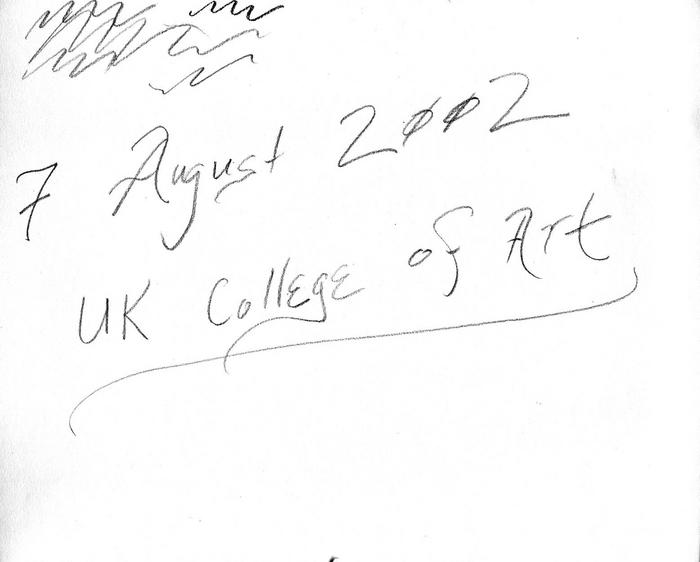 7 August 2002
UK College of Art